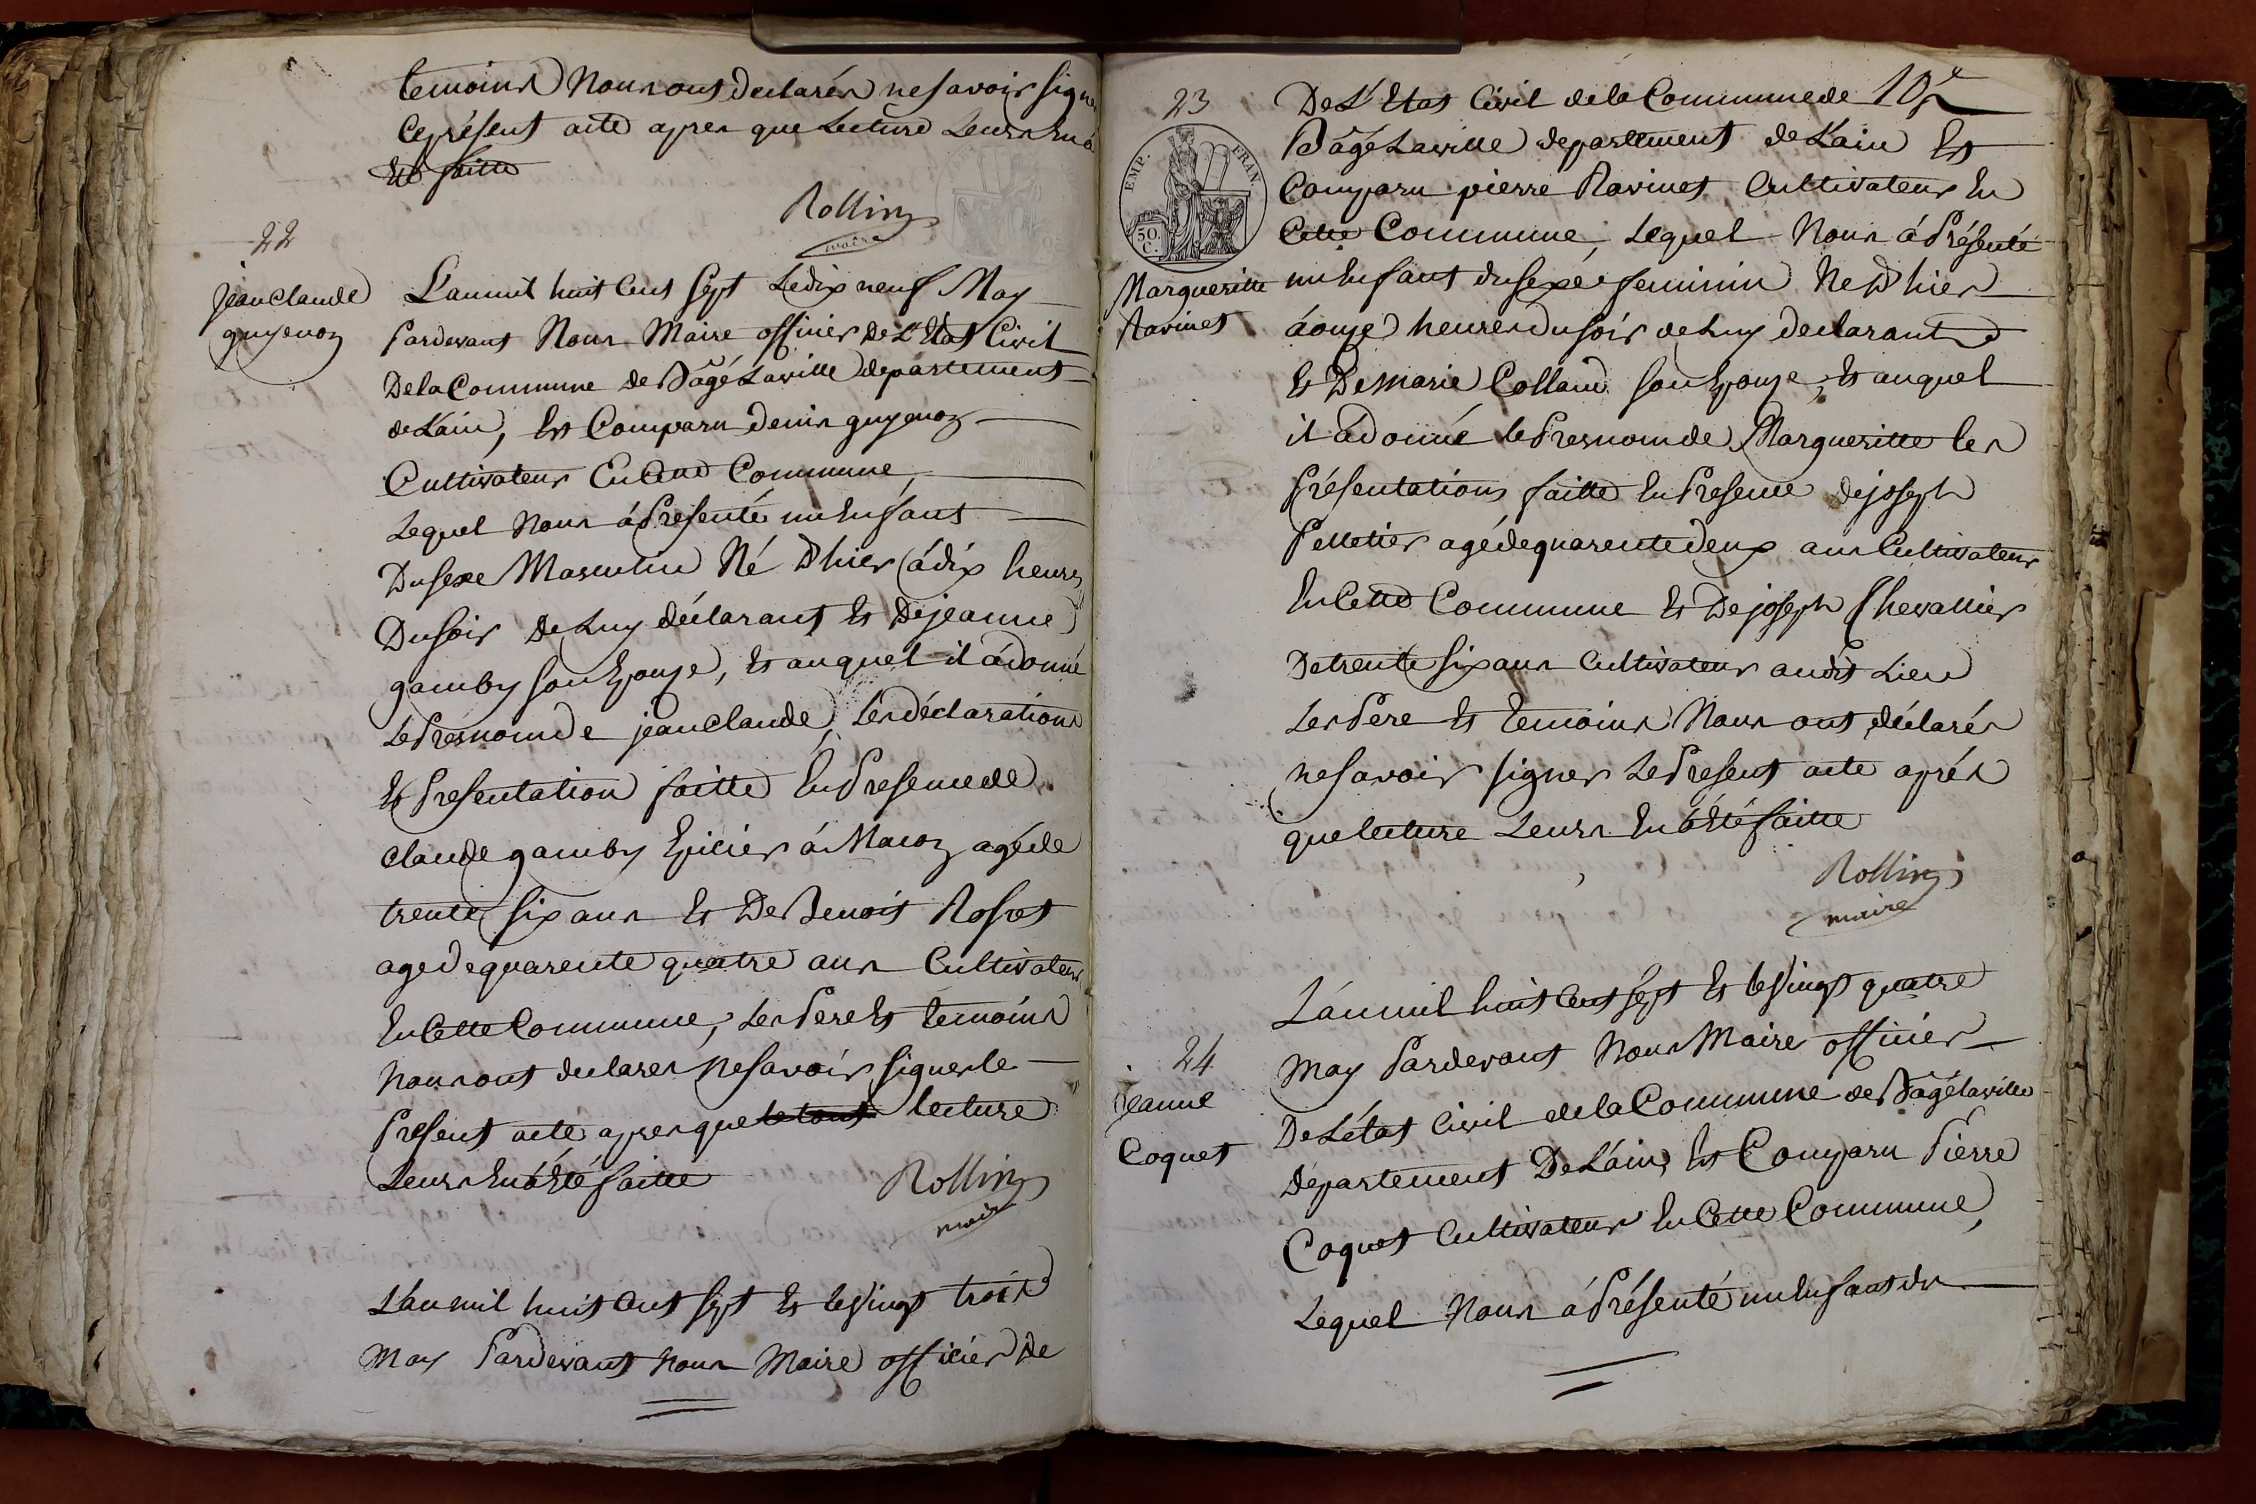 temoins Nous ont declarés ne savoir signer
Ce présent acte apres que Lecture Leurs En á
Eté faitte
Rollin
maire
22
jean Claude
guyenon
L'an mil huit Cent Sept Le dix neuf May
Pardevant Nous Maire officier De L'Etat Civil
De la Commune de Bâgé La ville departement
de L'ain, Est Comparu denis guyenon
Cultivateur En Cette Commune,
Lequel Nous á Présenté un Enfant
Du sexe Masculin Né D'hier á dix heures
Du soir De Luy déclarant Et De jeanne
gamby son Epouse, Et auquel il á donné
Le Presnom de jean Claude, Les déclarations
Et Presentation faitte En Presence de
Claude gamby Epicier á Macon agé de
trente six ans Et De Benoit Roset
agé de quarente quatre ans Cultivateur
En Cette Commune, Les Pere Et temoins
Nous ont declares Ne savoir signer le
Présent acte apres que le tout lecture
Leurs En á Eté faitte
Rollin
maire
L'an mil huit Cent sept Et le Vingt trois
May Pardevant Nous Maire officier De
10e
23
EMP. FRAN.
50. C.
Margueritte
Ravinet
De L'Etat Civil de la Commune de
Bâgé La ville departement de L'ain Est
Comparu pierre Ravinet Cultivateur En
Cette Commune, Lequel Nous á Présenté
un Enfant du sexe feminin Né D'hier
á onze heures du soir de Luy declarant
Et De Marie Colland son Epouse, Et auquel
il á donné le Presnom de Margueritte les
Présentations faitte En Presence de joseph
Pelletier agé de quarente deux ans Cultivateur
En Cette Commune Et De joseph Chevallier
De trente six ans Cultivateur audit Lieu
Les Pere Et temoins Nous ont déclarés
ne savoir signer Le Present acte aprés
que lecture Leurs En á Eté faitte
Rollin
maire
24
Jeanne
Coquet
L'an mil huit Cent sept Et le Vingt quatre
May Pardevant Nous Maire officier
De L'état Civil de la Commune de Bâgé la ville
Département De L'ain, Est Comparu Pierre
Coquet Cultivateur En Cette Commune,
Lequel Nous á Présenté un Enfant du